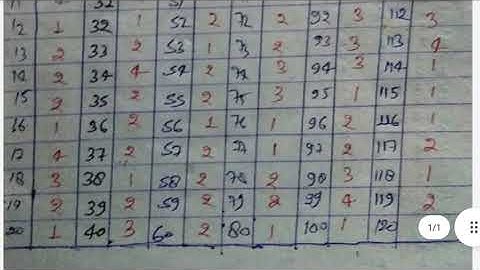 12 1 32 1 52 2 72 2 92 3 112 3
13 2 33 2 53 1 73 2 93 3 113 4
14 2 34 4 54 2 74 3 94 3 114 1
15 2 35 2 55 2 75 3 95 1 115 1
16 1 36 2 56 1 76 1 96 2 116 1
17 4 37 2 57 2 77 1 97 2 117 2
18 3 38 1 58 2 78 2 98 3 118 1
19 2 39 2 59 2 79 2 99 4 119 2
20 1 40 3 60 2 80 1 100 1 120
1/1